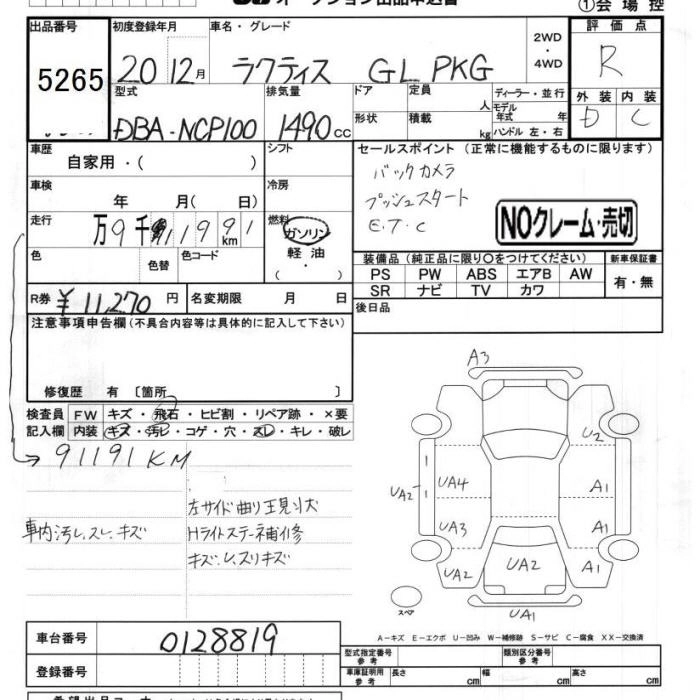 オークション出品申込書
①会場控
出品番号 初度登録年月 車名・グレード 2WD・4WD 評価点
5265 20 12月 ラクティス GL PKG R
型式 排気量 ドア 定員 人 ディーラー・並行 外装 内装
DBA-NCP100 1490cc 形状 積載 kg モデル年式 年 ハンドル 左・右 D C
車歴 シフト セールスポイント (正常に機能するものに限ります)
自家用・( )
バックカメラ
プッシュスタート
E.T.C
NOクレーム・売切
車検 冷房
年 月( 日)
走行 万9千 1991km 燃料 ガソリン
軽油
・( )
色 色替 色コード
装備品 (純正品に限り○をつけてください) 新車保証書
PS PW ABS エアB AW 有・無
SR ナビ TV カワ
R券 ¥11,270円 名変期限 月 日 後日品
注意事項申告欄(不具合内容等は具体的に記入して下さい)
修復歴 有 〔箇所 〕
検査員 FW キズ・飛石・ヒビ割・リペア跡・×要
記入欄 内装 キズ・汚レ・コゲ・穴・スレ・キレ・破レ
→91191KM
車内汚レ、スレ、キズ
Hライトステー補修
A3
U2
UA2 UA4 A1
UA3 A1
UA2 UA2 A1
スペア
UA1
A-キズ E-エクボ U-凹み W-補修跡 S-サビ C-腐食 XX-交換済
車台番号 0128819
型式指定番号 参考 類別区分番号 参考
登録番号 車庫証明用 参考 長さ cm 幅 cm 高さ cm